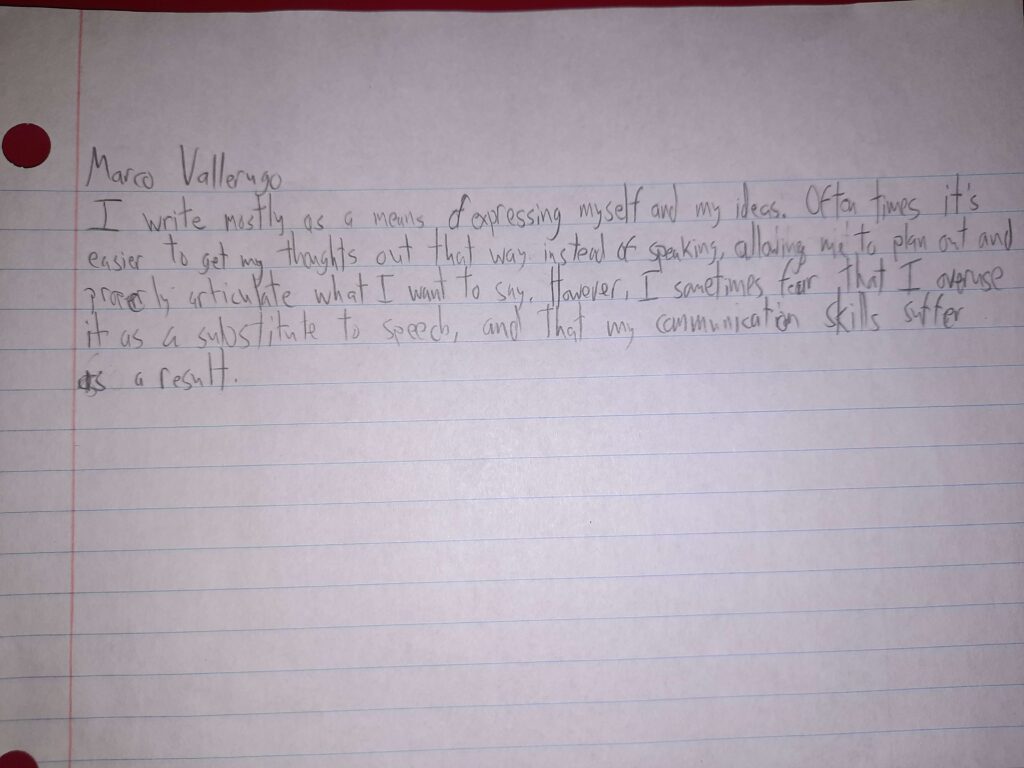 Marco Vallerugo
I write mostly as a means of expressing myself and my ideas. Often times it's
easier to get my thoughts out that way instead of speaking, allowing me to plan out and
properly articulate what I want to say. However, I sometimes fear that I overuse
it as a substitute to speech, and that my communication skills suffer
as a result.